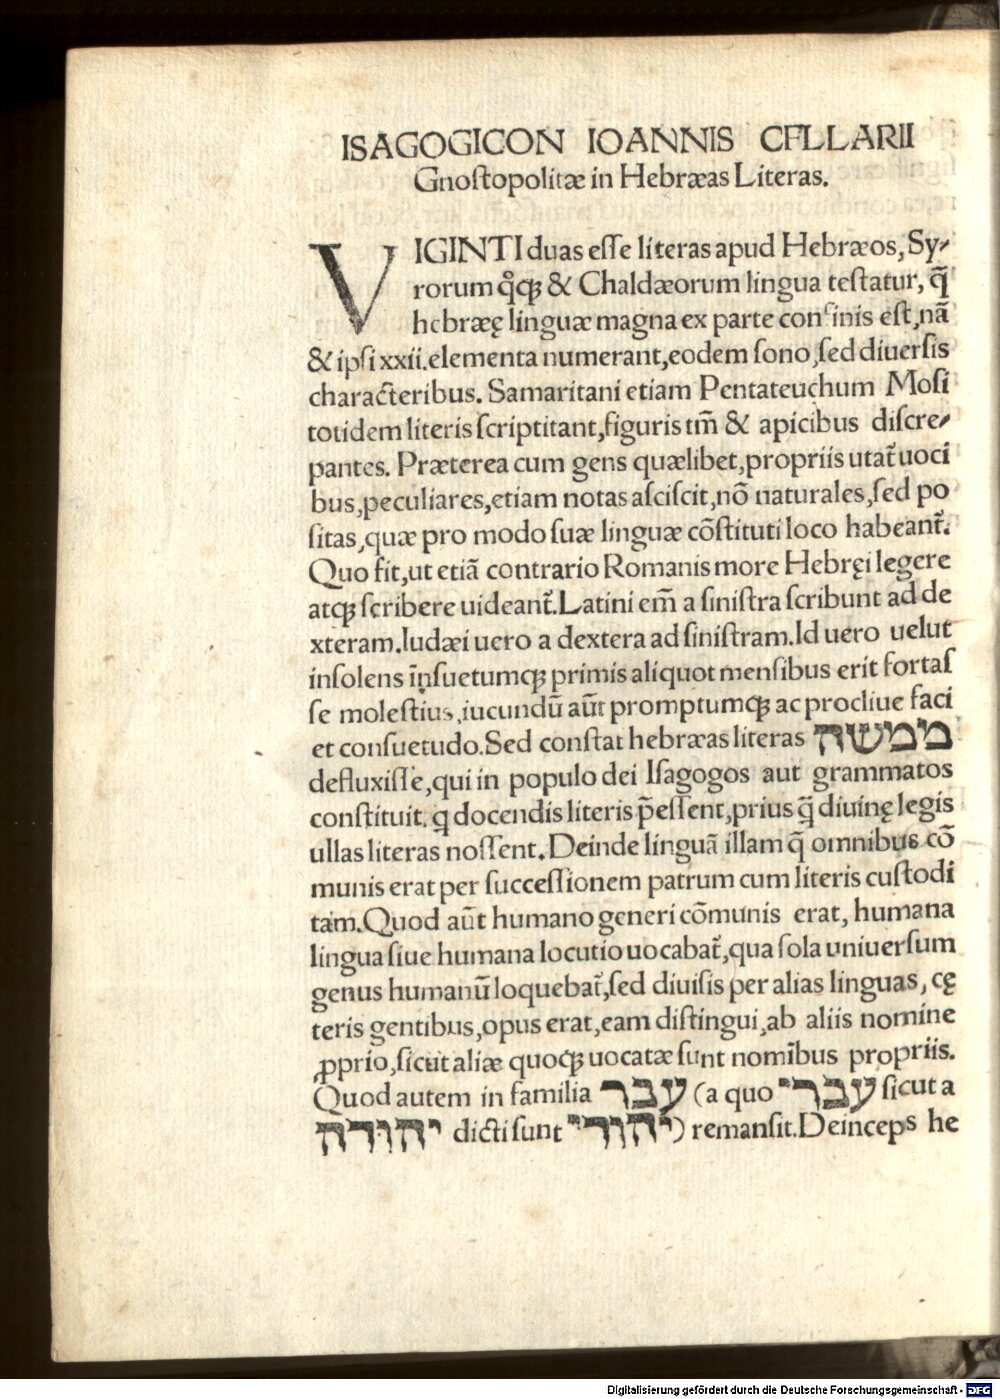 ISAGOGICON IOANNIS CFLLARII
Gnoſtopolitæ in Hebræas Literas.
VIGINTI duas eſſe literas apud Hebræos, Sy⸗
rorum qͦqꝫ & Chaldæorum lingua teſtatur, q̄
hebræę linguæ magna ex parte confinis eſt, nā
& ipſi xxii. elementa numerant, eodem ſono, ſed diuerſis
characteribus. Samaritani etiam Pentateuchum Moſi
totidem literis ſcriptitant, figuris tm̄ & apicibus diſcre⸗
pantes. Præterea cum gens quælibet, propriis utat᷑ uoci
bus, peculiares, etiam notas aſciſcit, nō naturales, ſed po
ſitas, quæ pro modo ſuæ linguæ cōſtituti loco habeant᷑.
Quo fit, ut etiā contrario Romanis more Hebręi legere
atqꝫ ſcribere uideant᷑. Latini em̄ a ſiniſtra ſcribunt ad de
xteram. Iudæi uero a dextera ad ſiniſtram. Id uero uelut
inſolens īnſuetumqꝫ primis aliquot menſibus erit fortaſ
ſe moleſtius, iucundū aūt promptumqꝫ ac procliue faci
et conſuetudo. Sed conſtat hebræas literas ממשה
defluxiſſe, qui in populo dei Iſagogos aut grammatos
conſtituit. ꝗ docendis literis p̄eſſent, prius q̄ diuinę legis
ullas literas noſſent. Deinde linguā illam q̄ omnibus cō
munis erat per ſucceſſionem patrum cum literis cuſtodi
tam. Quod aūt humano generi cōmunis erat, humana
lingua ſiue humana locutio uocabat᷑, qua ſola uniuerſum
genus humanū loquebat᷑, ſed diuiſis per alias linguas, cę
teris gentibus, opus erat, eam diſtingui, ab aliis nomine
ꝓprio, ſicut aliæ quoqꝫ uocatæ ſunt nomībus propriis.
Quod autem in familia עבר (a quo עברי ſicut a
יהודה dicti ſunt יהודי) remanſit. Deinceps he
Digitalisierung gefördert durch die Deutsche Forschungsgemeinschaft - DFG